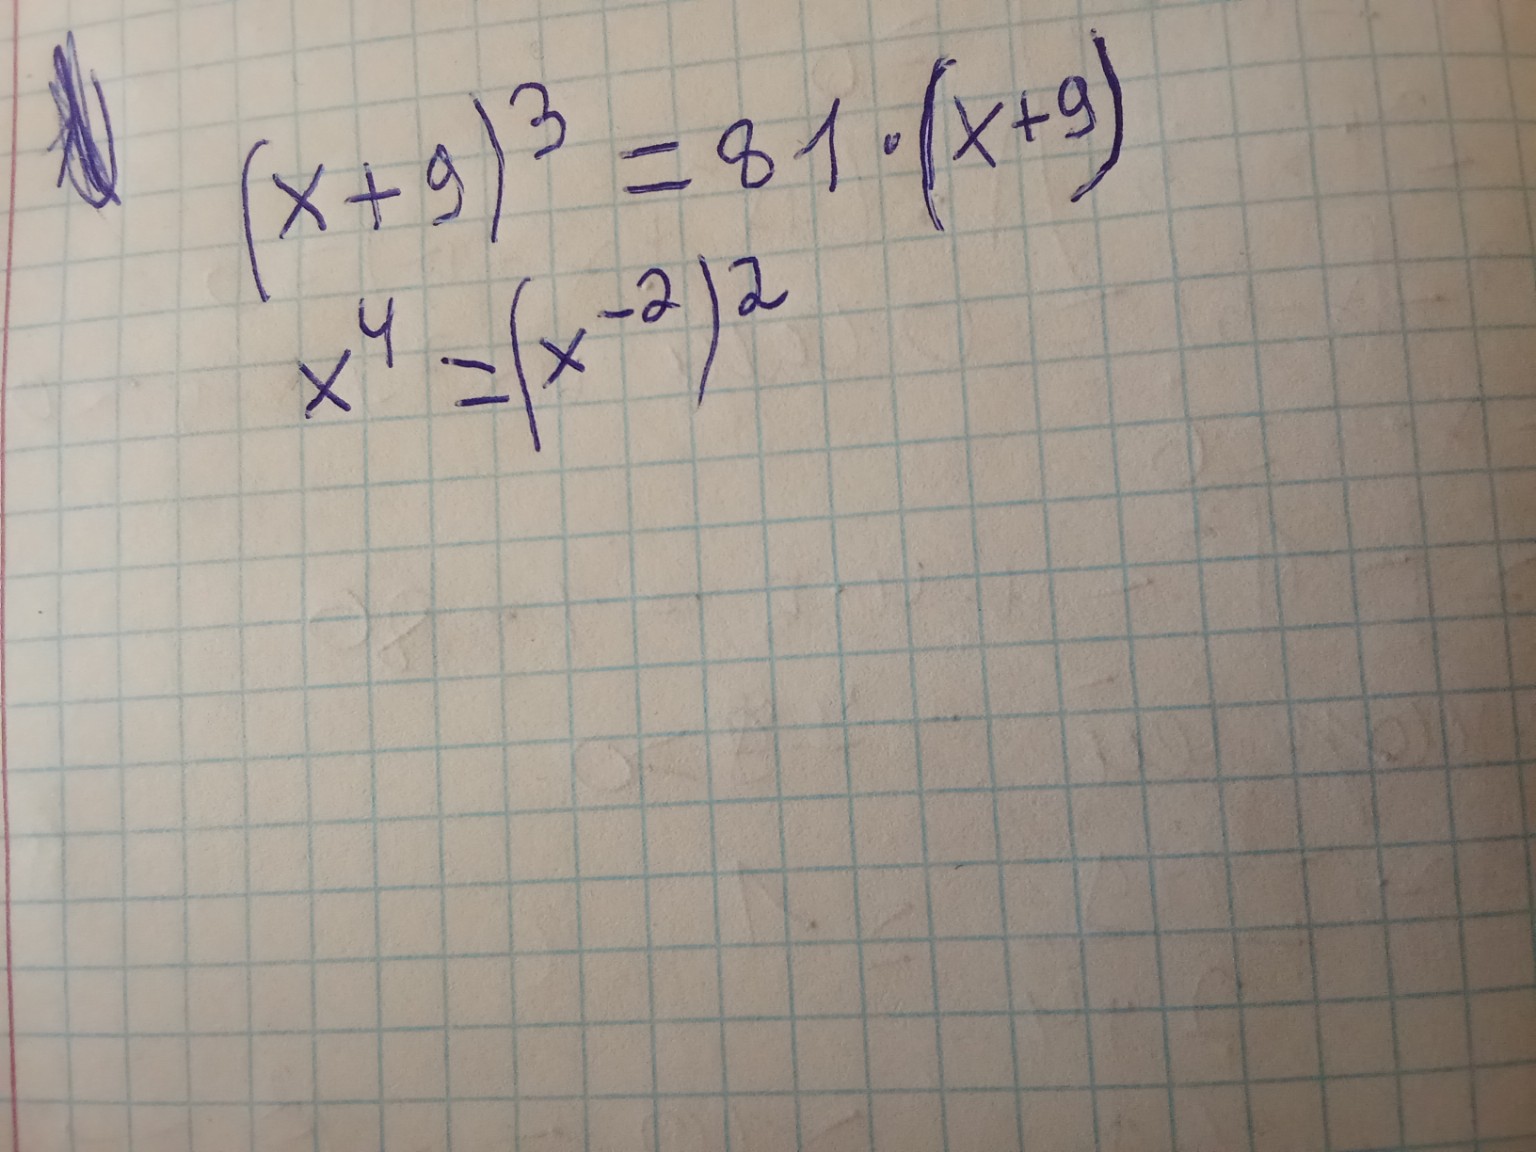 (x+9)³ = 81·(x+9)
x⁴ = (x⁻²)²